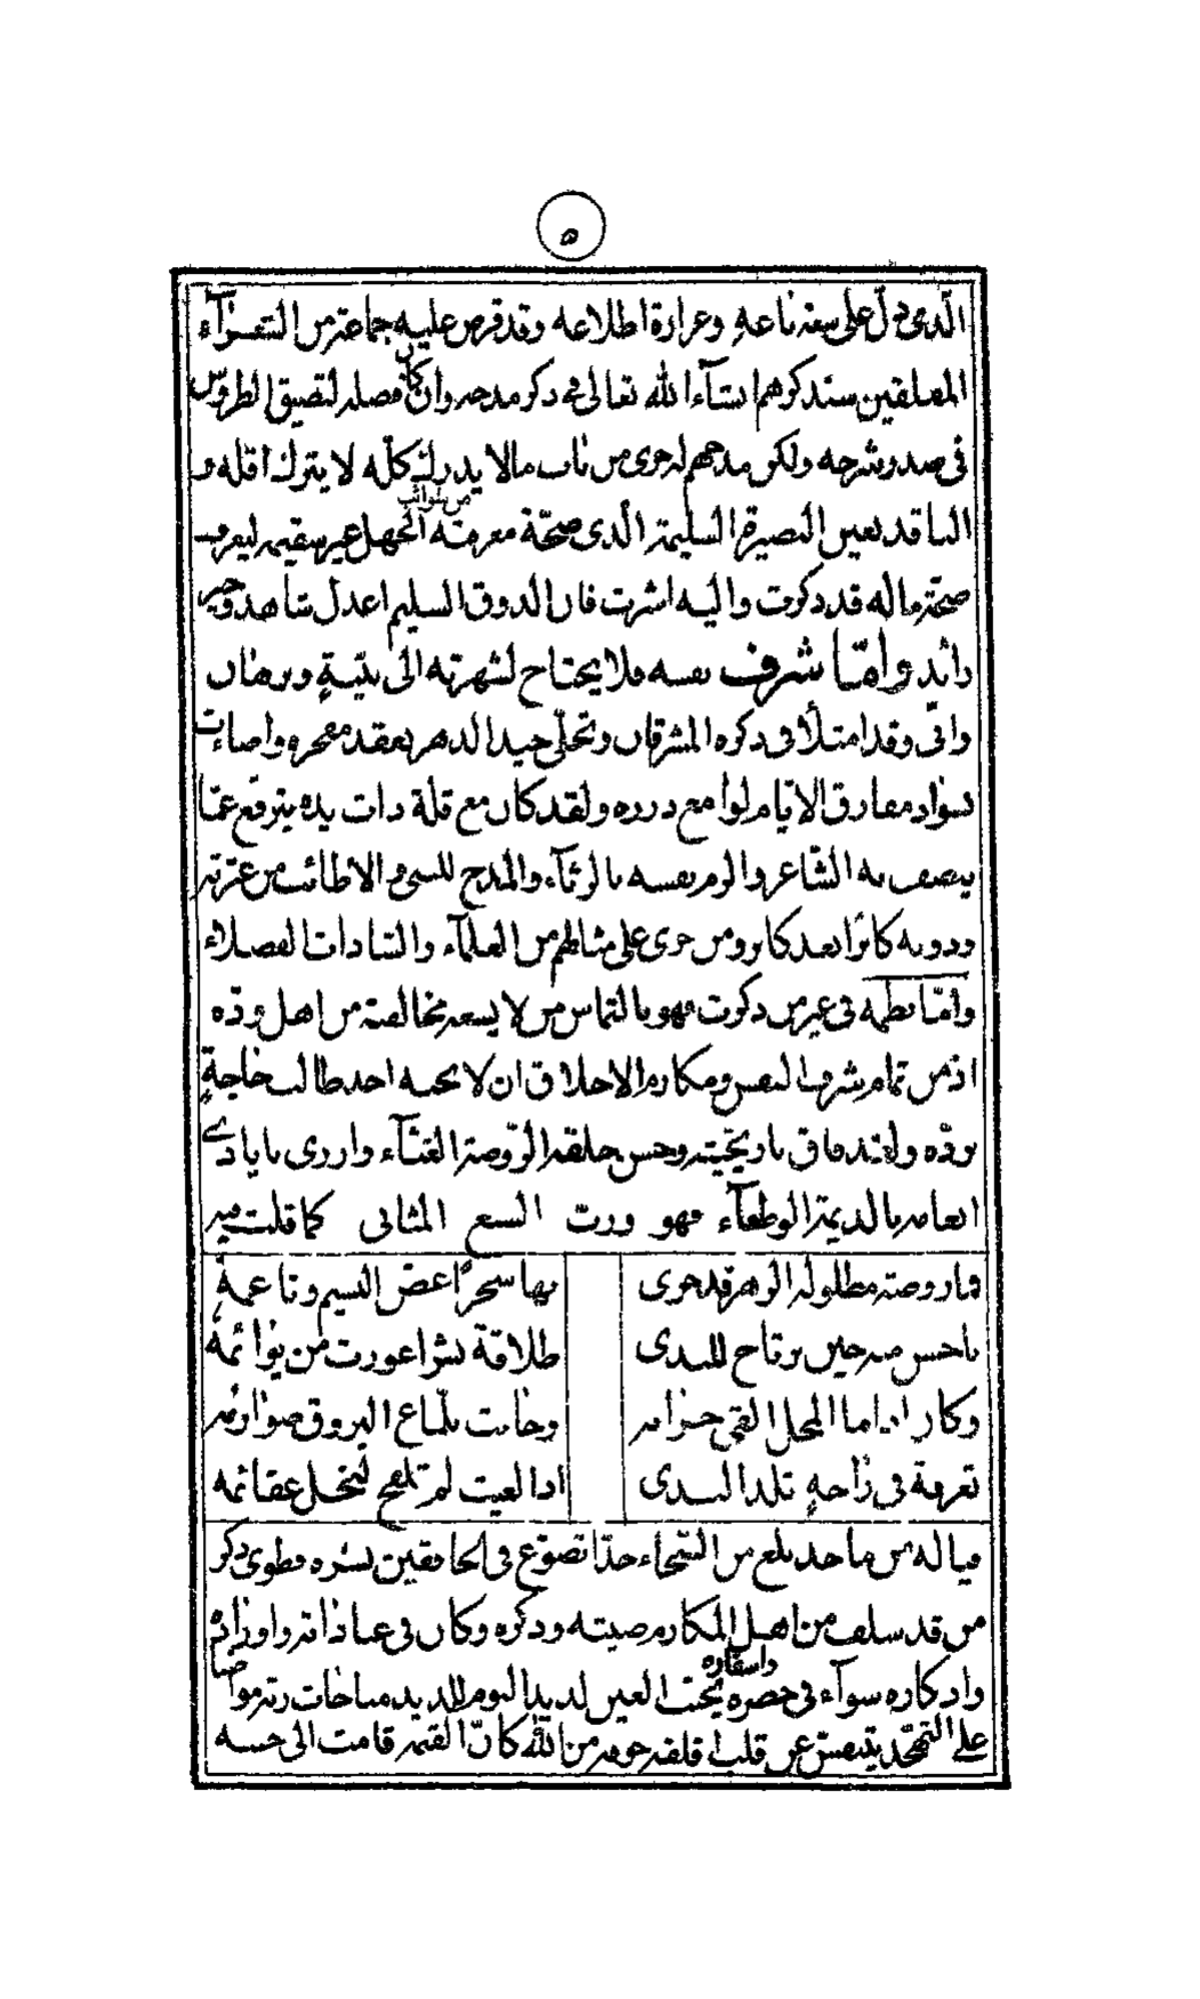 ٥
الّذى دلّ على سعة باعه وغزارة اطلاعه وقد قرض عليه جماعة من الشعرآء
المفلقين سنذكرهم انشآء الله تعالى فى ذكر مدحه وان كان فضله لتضيق الطروس
فى صدد شرحه ولكن مدحهم له جرى من باب مالا يدرك كلّه لا يترك اقله و
الناقد بعين البصيرة السليمة الّذى صحّة معرفته من شوائب الجهل غير سقيمه ليعرف
صحّة ما له قد ذكرت واليه اشرت فان الذوق السليم اعدل شاهد وخير
رائد وامّا شرف نفسه فلا يحتاج لشهرته الى بيّنةٍ وبرهان
وانّى وقد امتلأ فى ذكره المشرقان وتحلّى جيد الدهر بعقد مفخره واضاءت
بسواد مفارق الايّام لوامع درره ولقد كان مع قلة ذات يده يترفع عمّا
يتصف به الشّاعر والزم نفسه بالرثآء والمدح للنبى والاطائب من عترته
وذويه كابرًا بعد كابر ومن جرى على مثالهم من العلمآء والسّادات الفضلاء
وامّا نظمه فى غير من ذكرت فهو بالتماس من لا يسعه مخالفته من اهل ودّه
اذ من تمام شرف النفس ومكارم الاخلاق ان لا يجبه احد طالب حاجةٍ
بردّه ولقد فاق باريحيته وحسن خلقه الرّوضة الغنّآء وازرى بايادى
انعامه بالديمة الوطفآء فهو ورث السبع المثانى كما قلت فيه
فما روضة مطلولة الزهر قد جرى
بها سحرًا غضّ النسيم وناعمه
باحسن منه حين يرتاح للندى
طلاقة بشر اعوزت من يوائمه
وكان اذا ما المحل القى جرانه
وخابت بلمّاع البروق صوارمه
تعرفه فى راحةٍ تلد الندى
اذا الغيث لم تلقح لبخل عقائمه
فيا له من ماجد بلغ من السّخاء حدًّا تضوّع فى الخافقين نشره فطوى ذكر
من قد سلف من اهل المكارم صيته وذكره وكان فى عباداته واوراده
واذكاره سوآء فى حضره واسفاره يجتنب العين لذيذ النوم للذيذ مناجات ربّه مواضبا
على التهجّد يتنفس عن قلب اقلقه خوفه من الله كانّ القيمة قامت الى جنبه